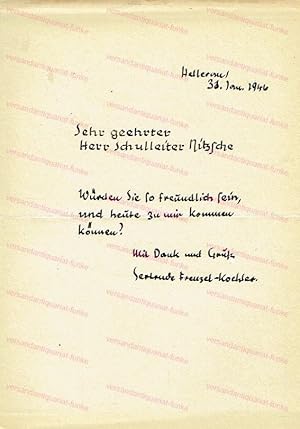 Hellerau,
30. Jan. 1946
Sehr geehrter
Herr Schulleiter Nitzsche
Würden Sie so freundlich sein,
und heute zu mir kommen
können?
Mit Dank und Gruß
Gertrude Frenzel-Kochler.
versandantiquariat-funke